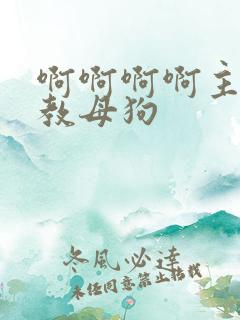 啊啊啊啊主
教母狗
冬風必達
未经同意禁止转载